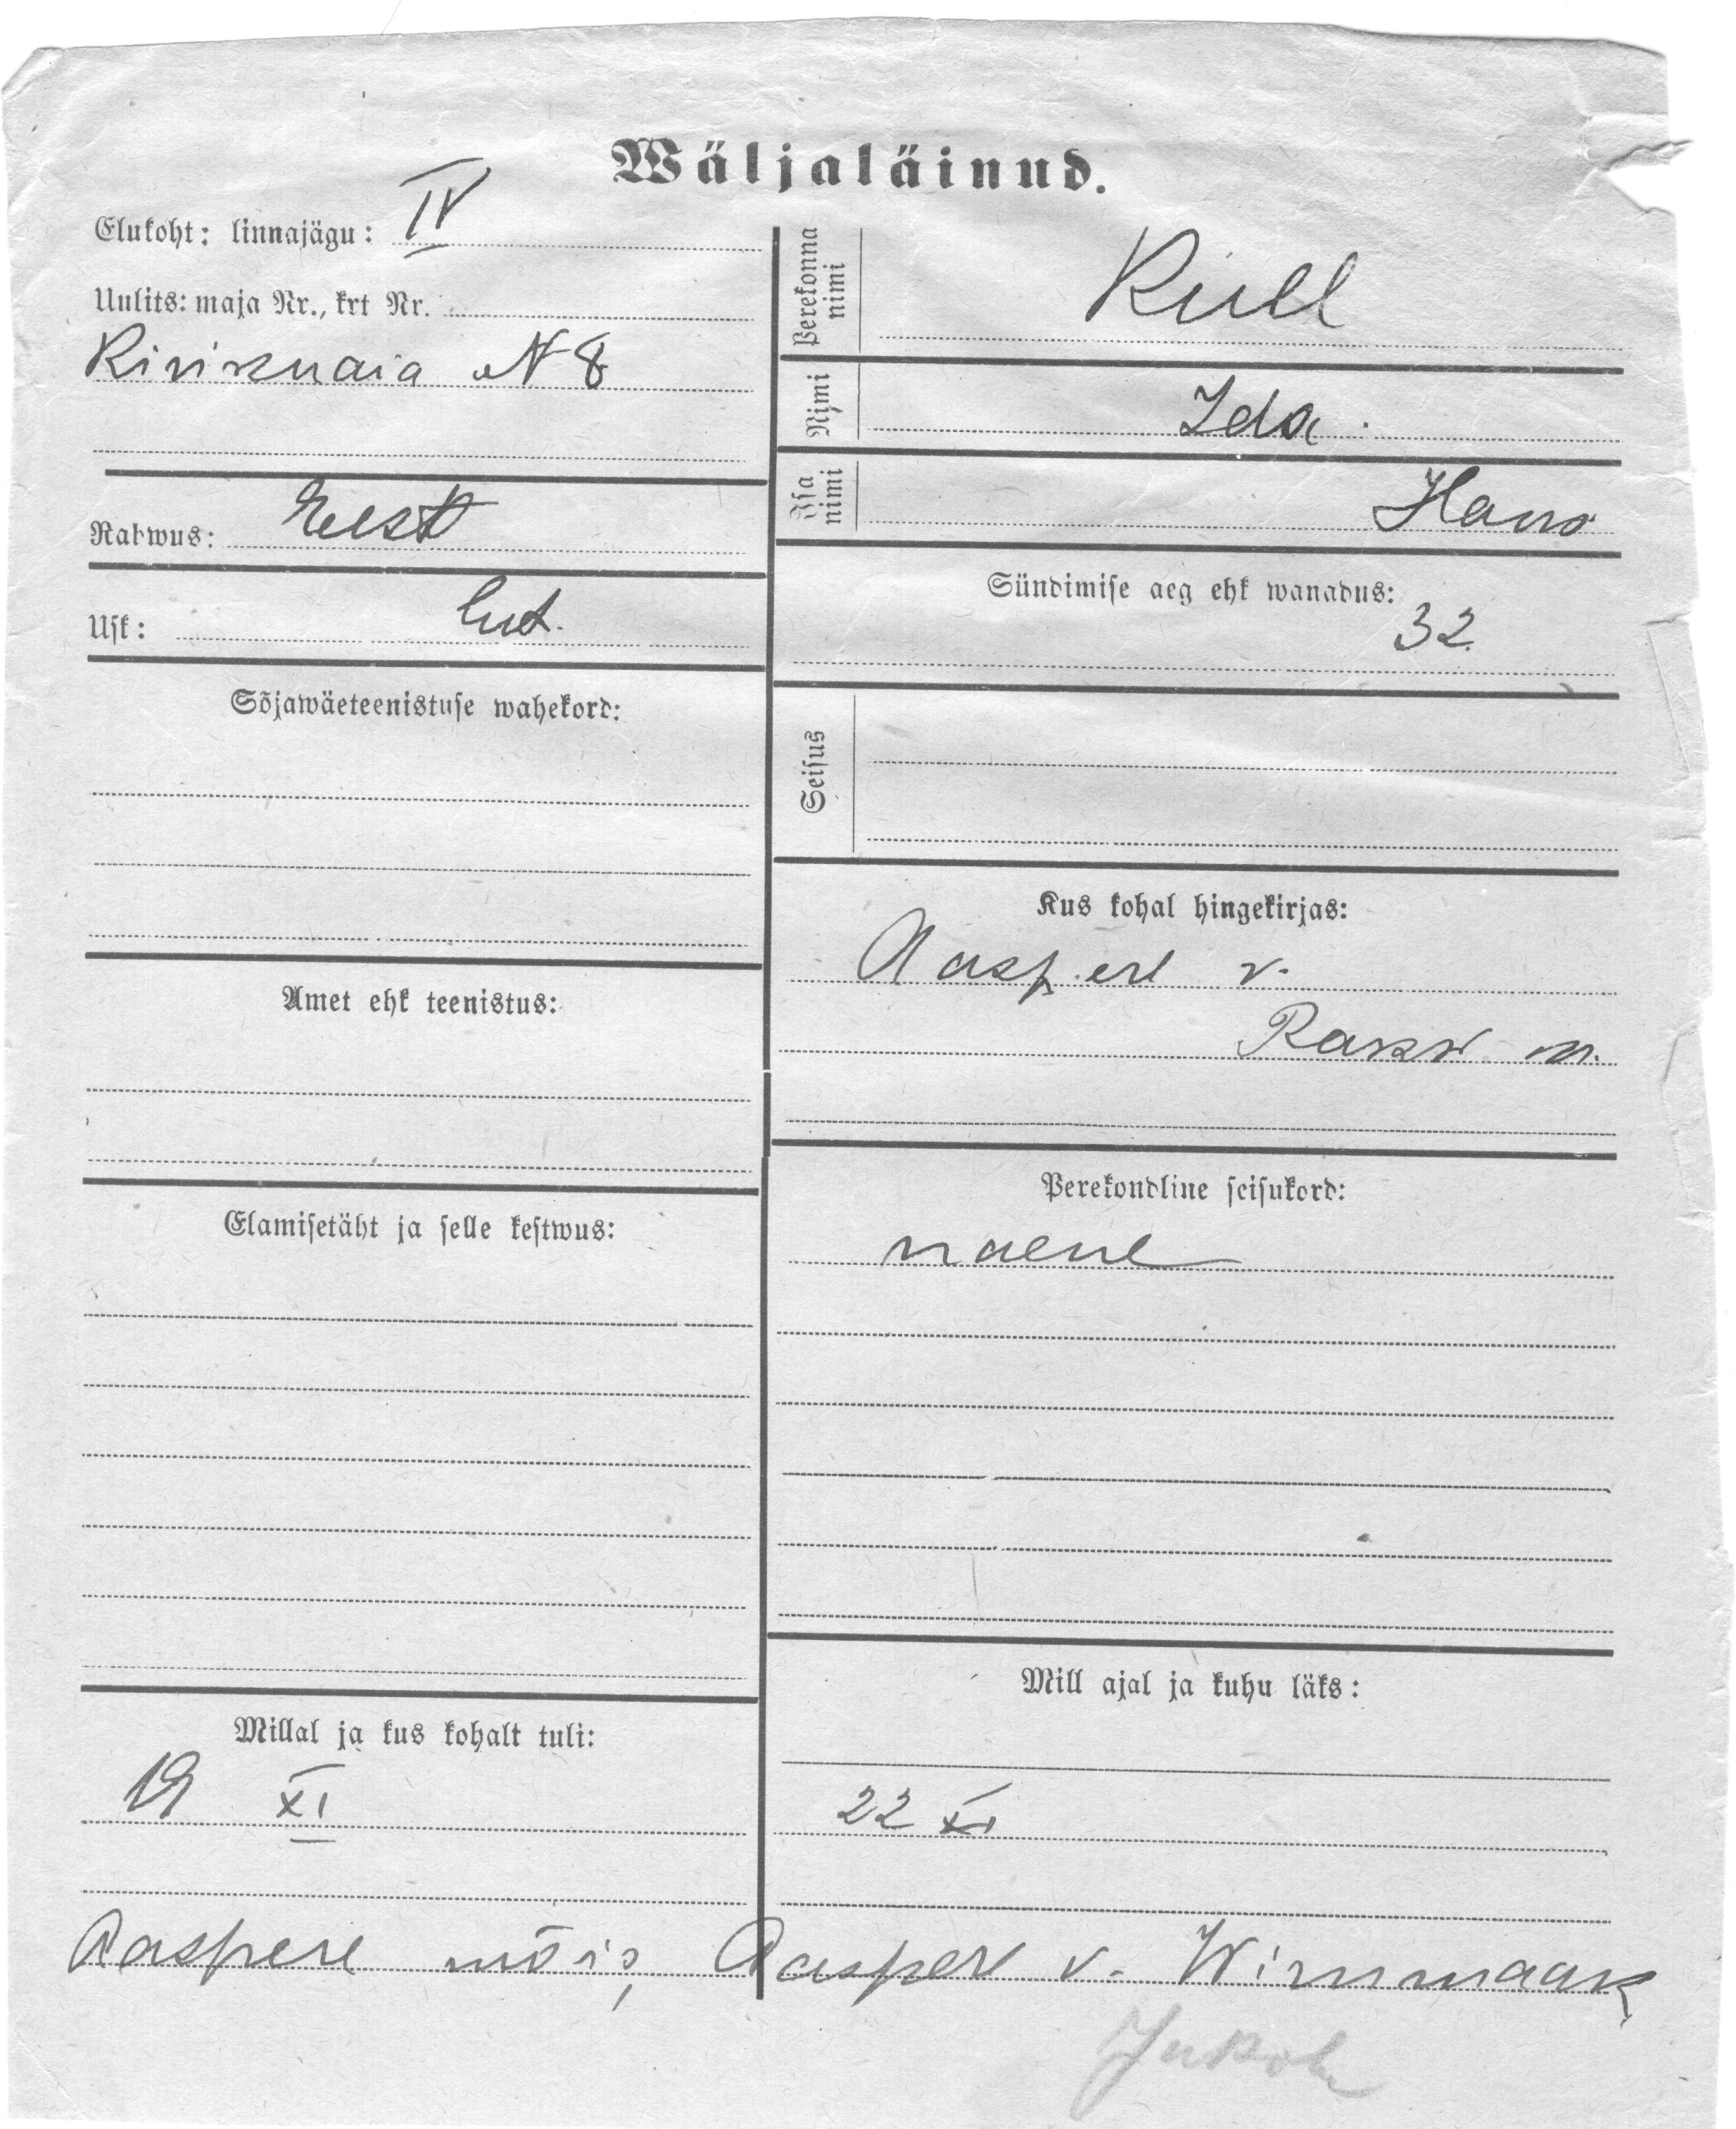 Wäljaläinud.
Elukoht: linnajägu: IV
Uulits: maja Nr., krt Nr.
Kirikuaia N 8
Rahwus: Eest
Usk: Lut.
Sõjawäeteenistuse wahekord:
Amet ehk teenistus:
Elamisetäht ja selle kestwus:
Millal ja kus kohalt tuli:
19 XI
Aaspere mõis,
Perekonna nimi
Küll
Nimi Ida.
Isa nimi
Sündimise aeg ehk wanadus:
32
Seisus
Kus kohal hingekirjas:
Aaspere v.
Rakw m.
Perekondline seisukord:
naene
Mill ajal ja kuhu läks:
22 XI
Aaspere v. Wirumaak
Jakob